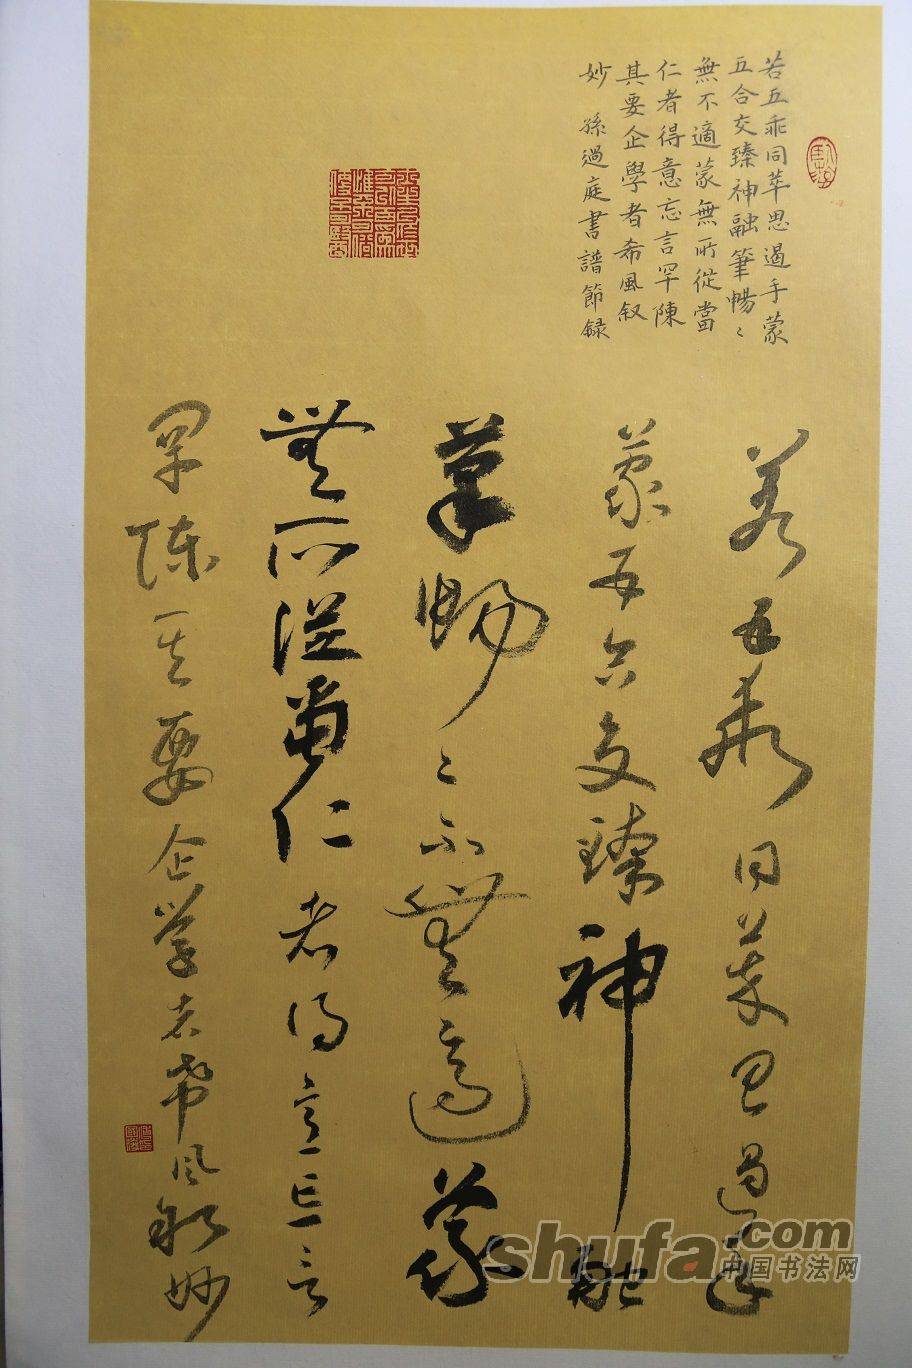 若五乖同萃思遏手蒙
五合交臻神融筆暢〻
無不適蒙無所從當
仁者得意忘言罕陳
其要企學者希風叙
妙 孫過庭書譜節録
若五乖同萃思遏手
蒙五合交臻神融
筆暢〻不無適蒙
無所從當仁者得意忘言
罕陳其要企學者希風叙妙
shufa.com
中国书法网